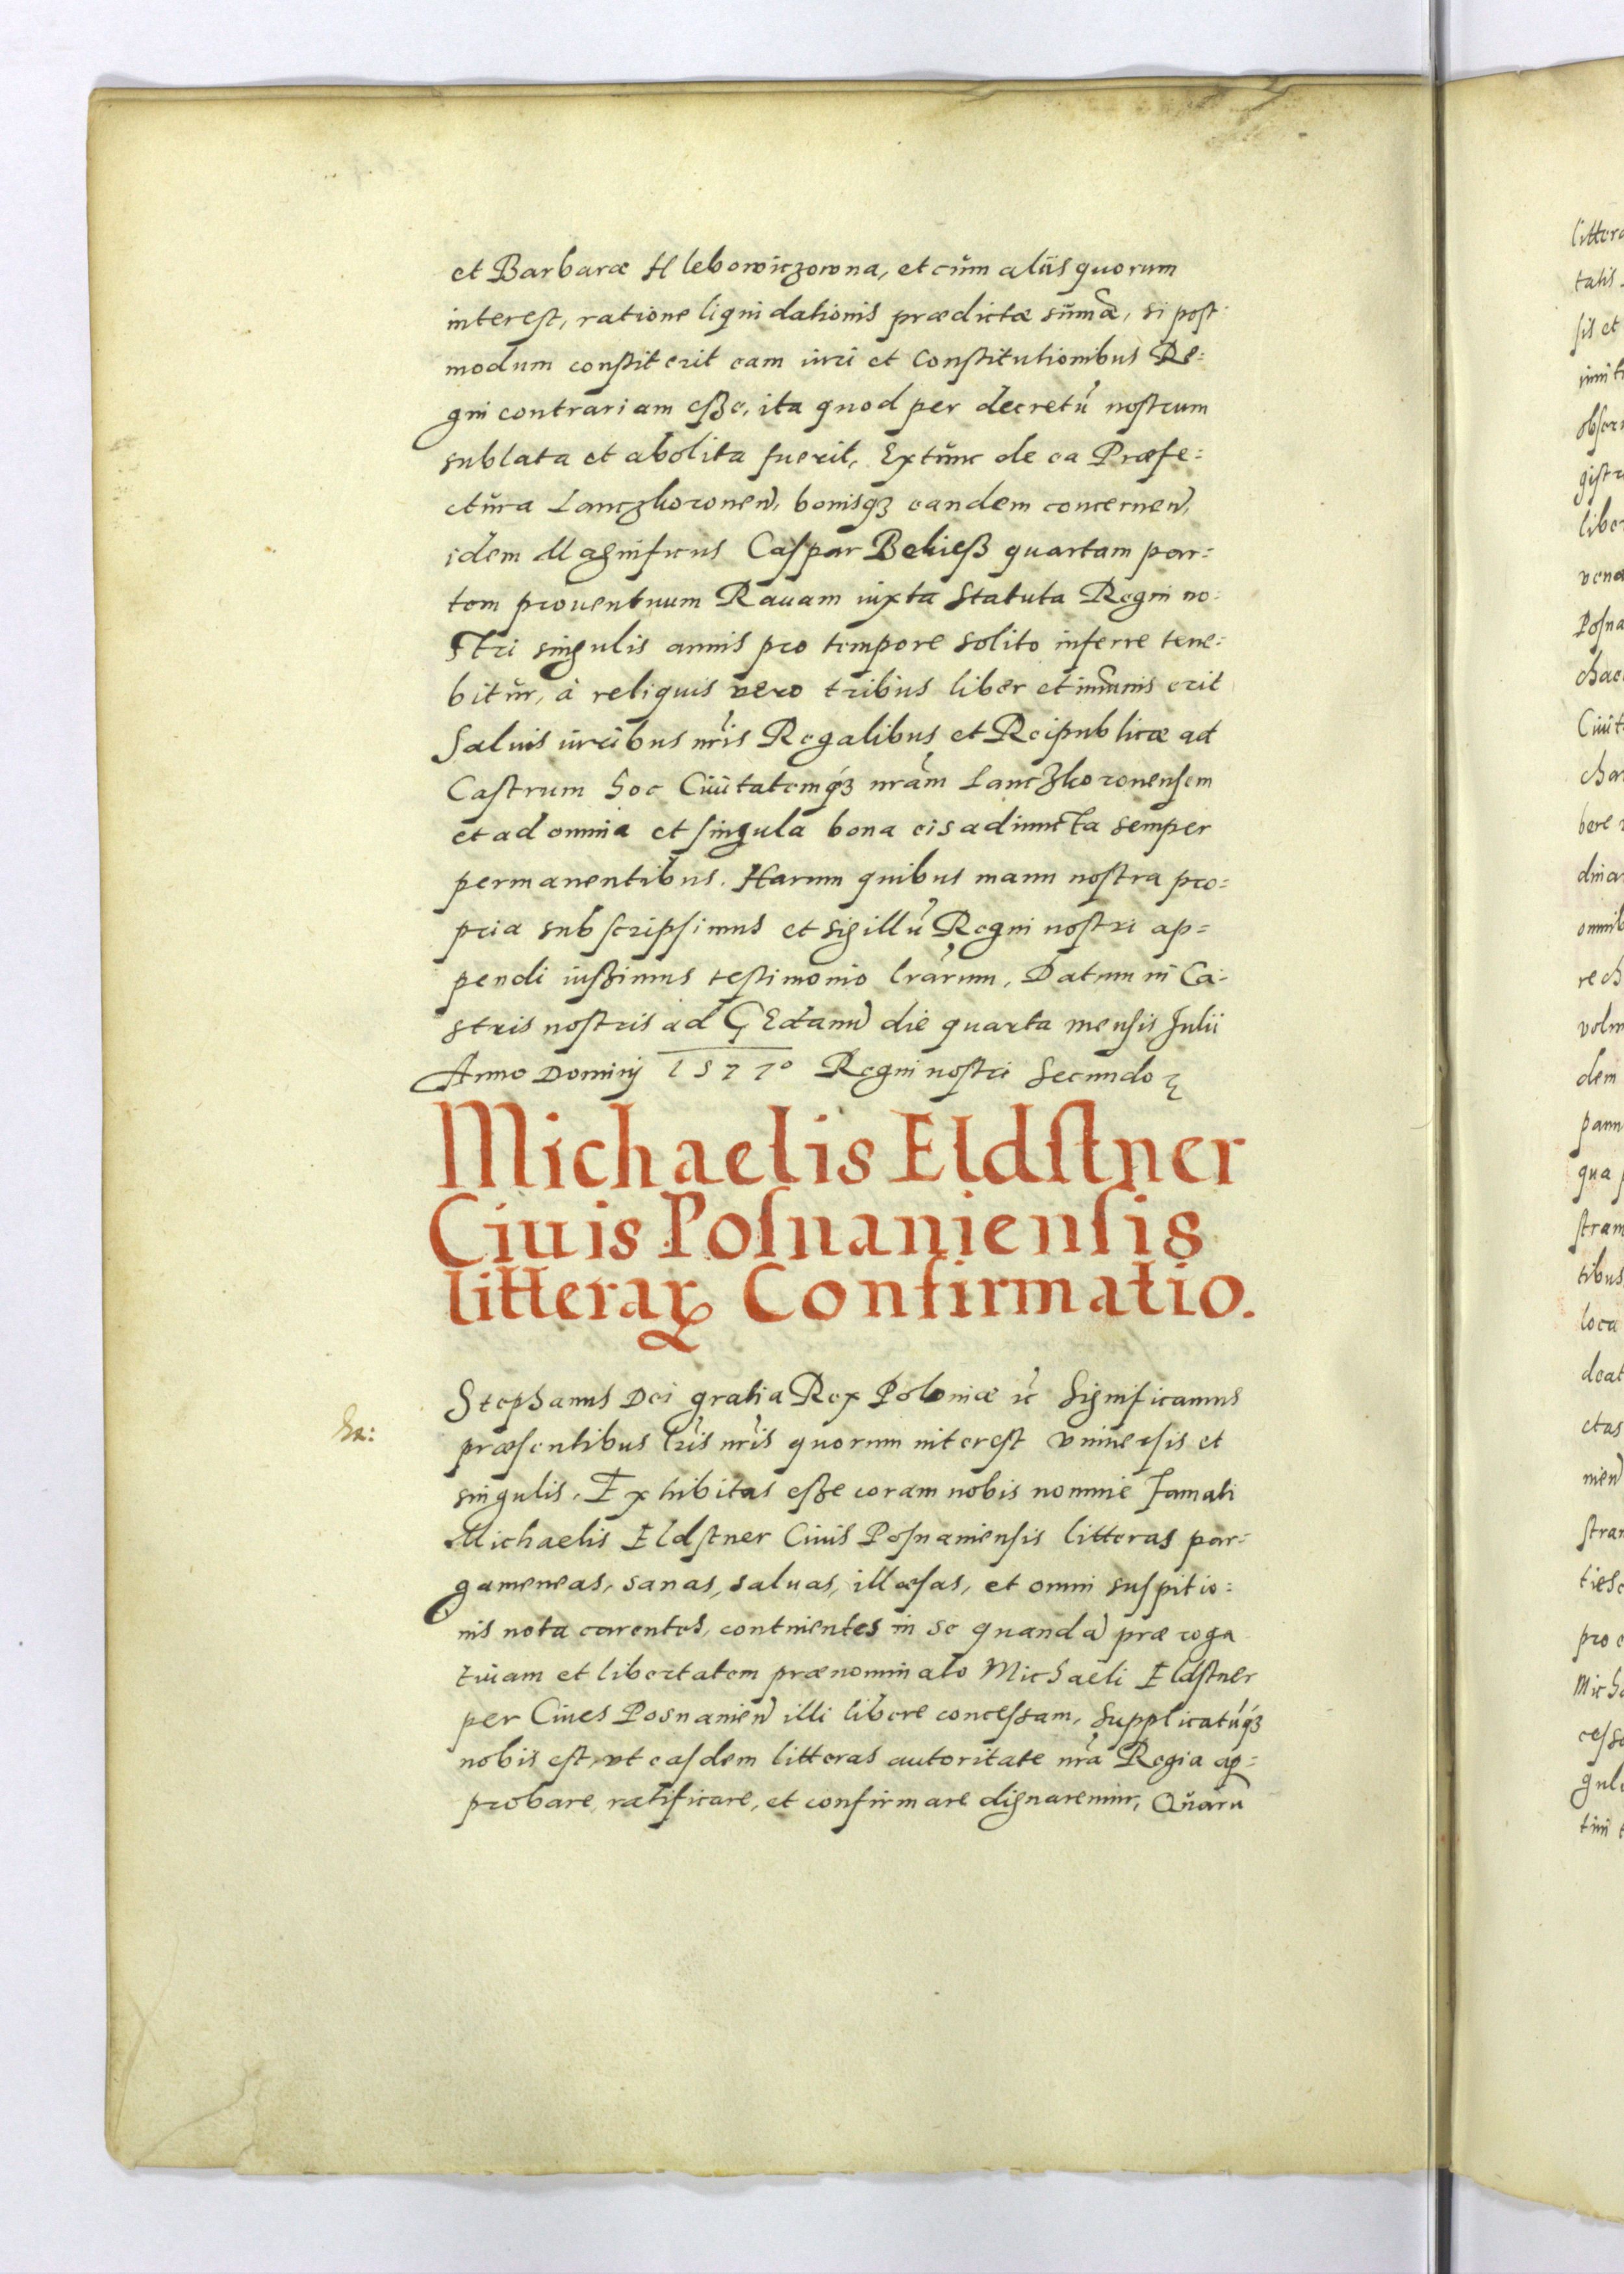 et Barbaræ Hlebowiczowna, et cŭm aliis quorum
interest, ratione liquidationis prædictæ sūmæ, si post:
modum constiterit eam iuri et Constitutionibus Re:
gni contrariam eße, ita quod per decretū nostrum
sublata et abolita fuerit, Extŭnc de ea Præfe:
ctŭra Lanczkoronen, bonisqꝫ eandem concernen,
idem Magnificus Caspar Bekieß quartam par:
tem prouentuum Rauam iuxta Statuta Regni no:
stri singulis annis pro tempore solito inferre tene:
bitŭr, à reliquis vero tribus liber et im̄unis erit
Saluis iuribus nr̄is Regalibus et Reipublicæ ad
Castrum hoc Ciuitatemqꝫ nrām Lanczkoronensem
et ad omnia et singula bona eis adiuncta semper
permanentibus. Harum quibus manu nostra pro:
pria subscripsimus et sigillū Regni nostri ap=
pendi iußimus testimonio lrārum, Datum in Ca:
stris nostris ad GEdanū die quarta mensis Julii
Anno Dominj 1577º Regni nostri Secundo
Michaelis Eldstner
Ciuis Posnaniensis
litteraꝝ Confirmatio.
Stephanus Dei gratia Rex Poloniæ ec̄ Significamus
præsentibus lrīs nrīs quorum interest vniuersis et
singulis. Exhibitas eße coram nobis nomine Famati
Michaelis Eldstner Ciuis Posnaniensis litteras par:
gameneas, sanas, saluas, illæsas, et omni suspitio:
nis nota carentes, continentes in se quandā præroga
tiuam et libertatem prænominato Michaeli Eldstner
per Ciues Posnanien illi libere concessam, Supplicatūqꝫ
nobis est, vt easdem litteras autoritate nrā Regia ap:
probare, ratificare, et confirmare dignaremur, Quarū